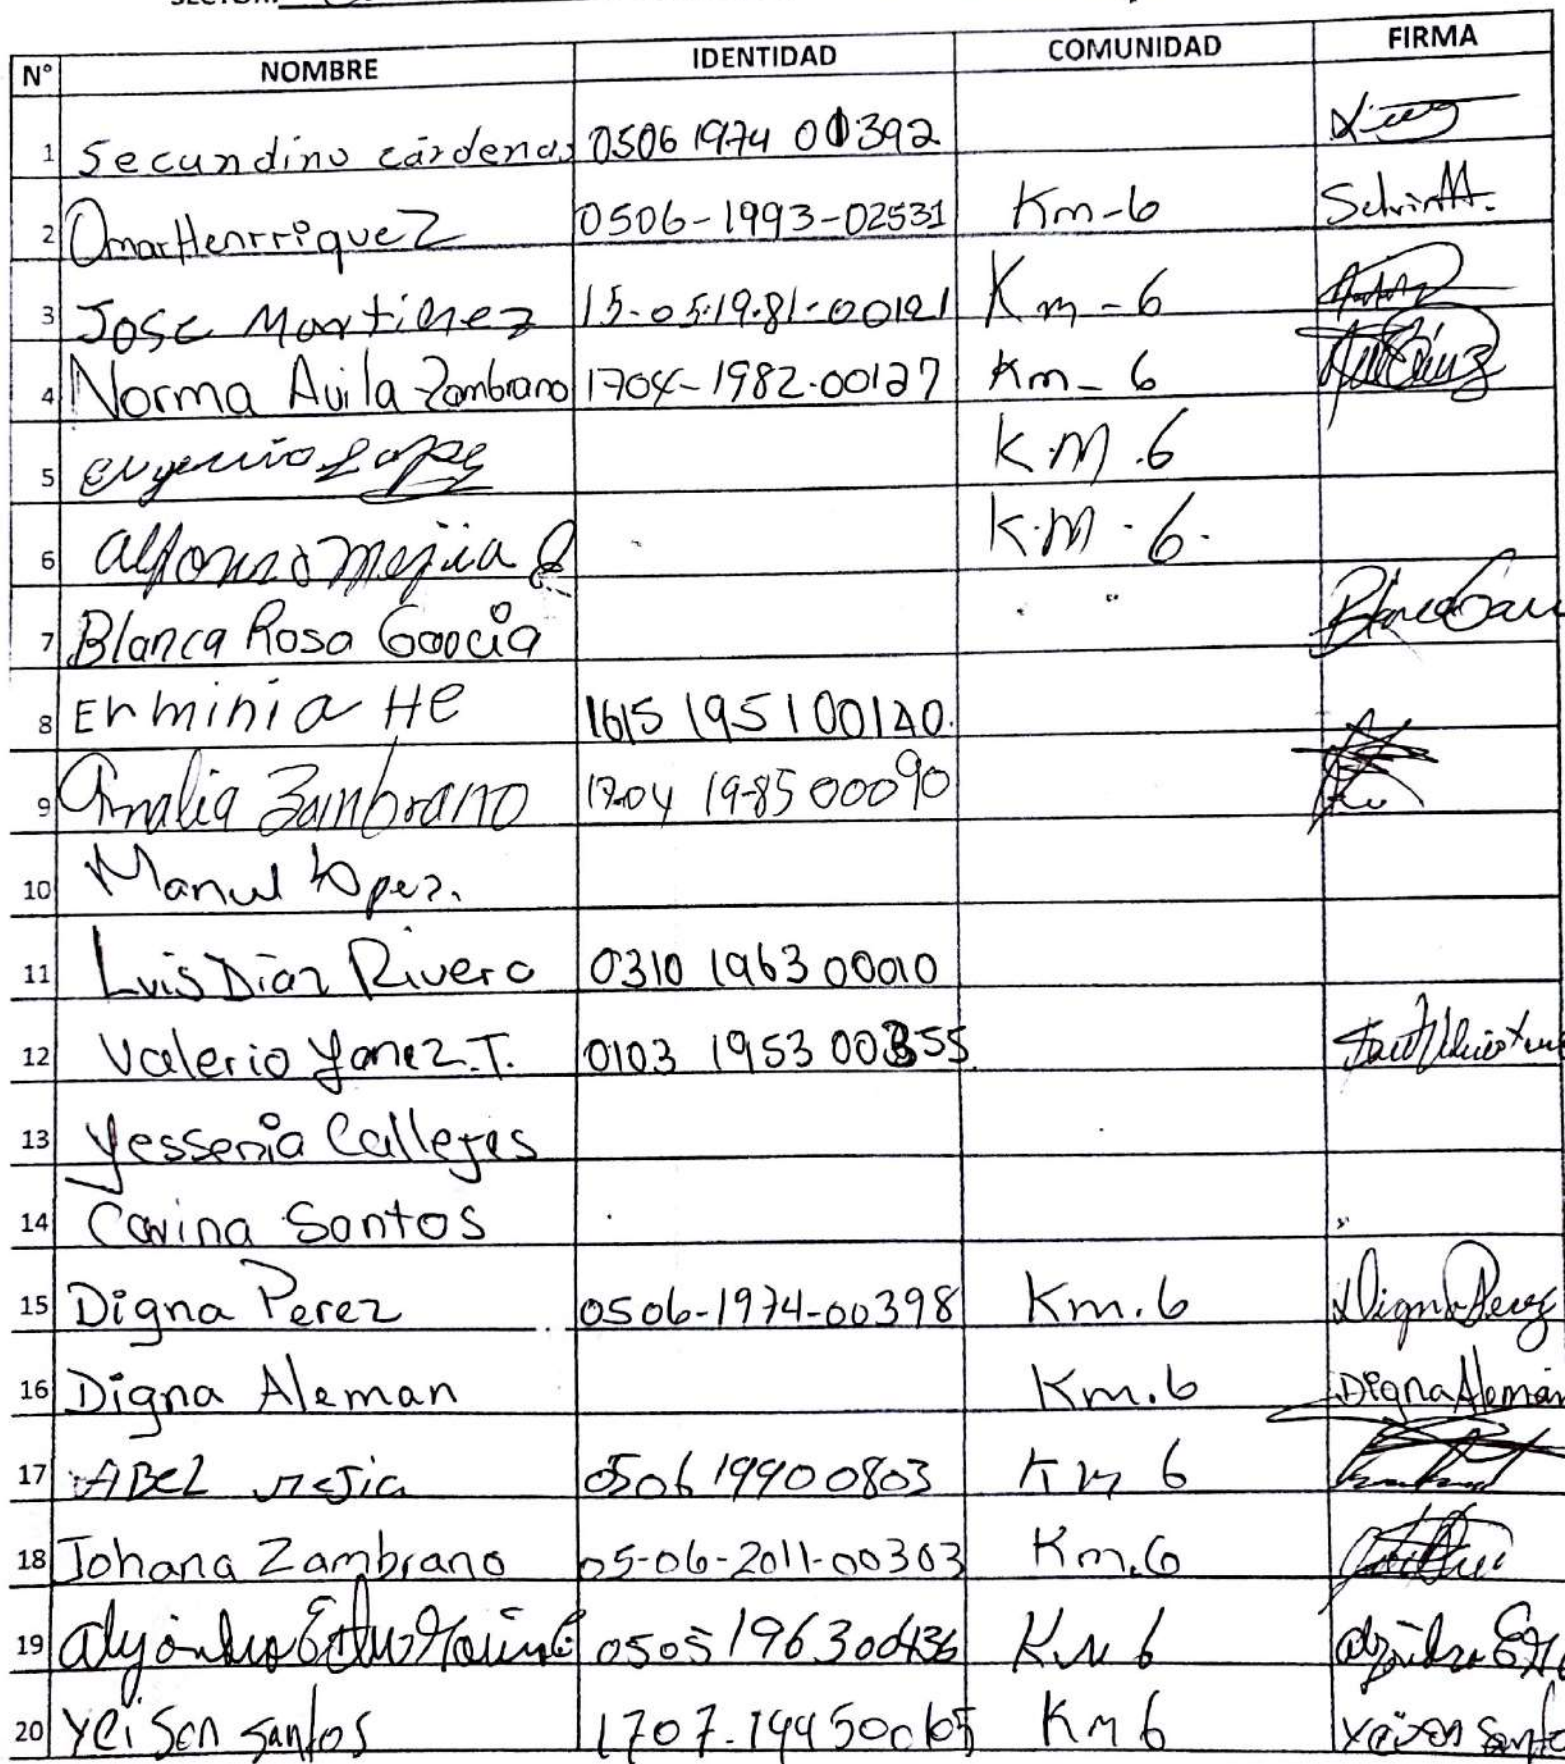 N° NOMBRE IDENTIDAD COMUNIDAD FIRMA
1 Secundino cárdenas 0506 1974 00392
2 Omar Henrriquez 0506-1993-02531 Km-6
3 Jose Martinez 15-05-19-81-00121 Km-6
4 Norma Avila Zambrano 1704-1982-00127 Km-6
5 K.M.6
6 Alfonso Mejia K.M-6.
7 Blanca Rosa Garcia " Blanca Garc
8 Erminia HE 1615 1951 00140.
9 Amalia Zambrano 17-04 19-85 00090
10 Manuel Lopez.
11 Luis Diaz Rivera 0310 1963 00010
12 Valerio Yanez.T. 0103 1953 00355
13 Yessenia Calleges
14 Carina Santos
15 Digna Perez 0506-1974-00398 Km.6 Digna Perez
16 Digna Aleman Km.6 Digna Aleman
17 ABEL mejia 0506 19900803 Km 6
18 Johana Zambrano 05-06-2011-00303 Km.6
19 0505 1963 00436 Km 6
20 Yeison Santos 1707-1995 00 Km 6 Yeison Santo